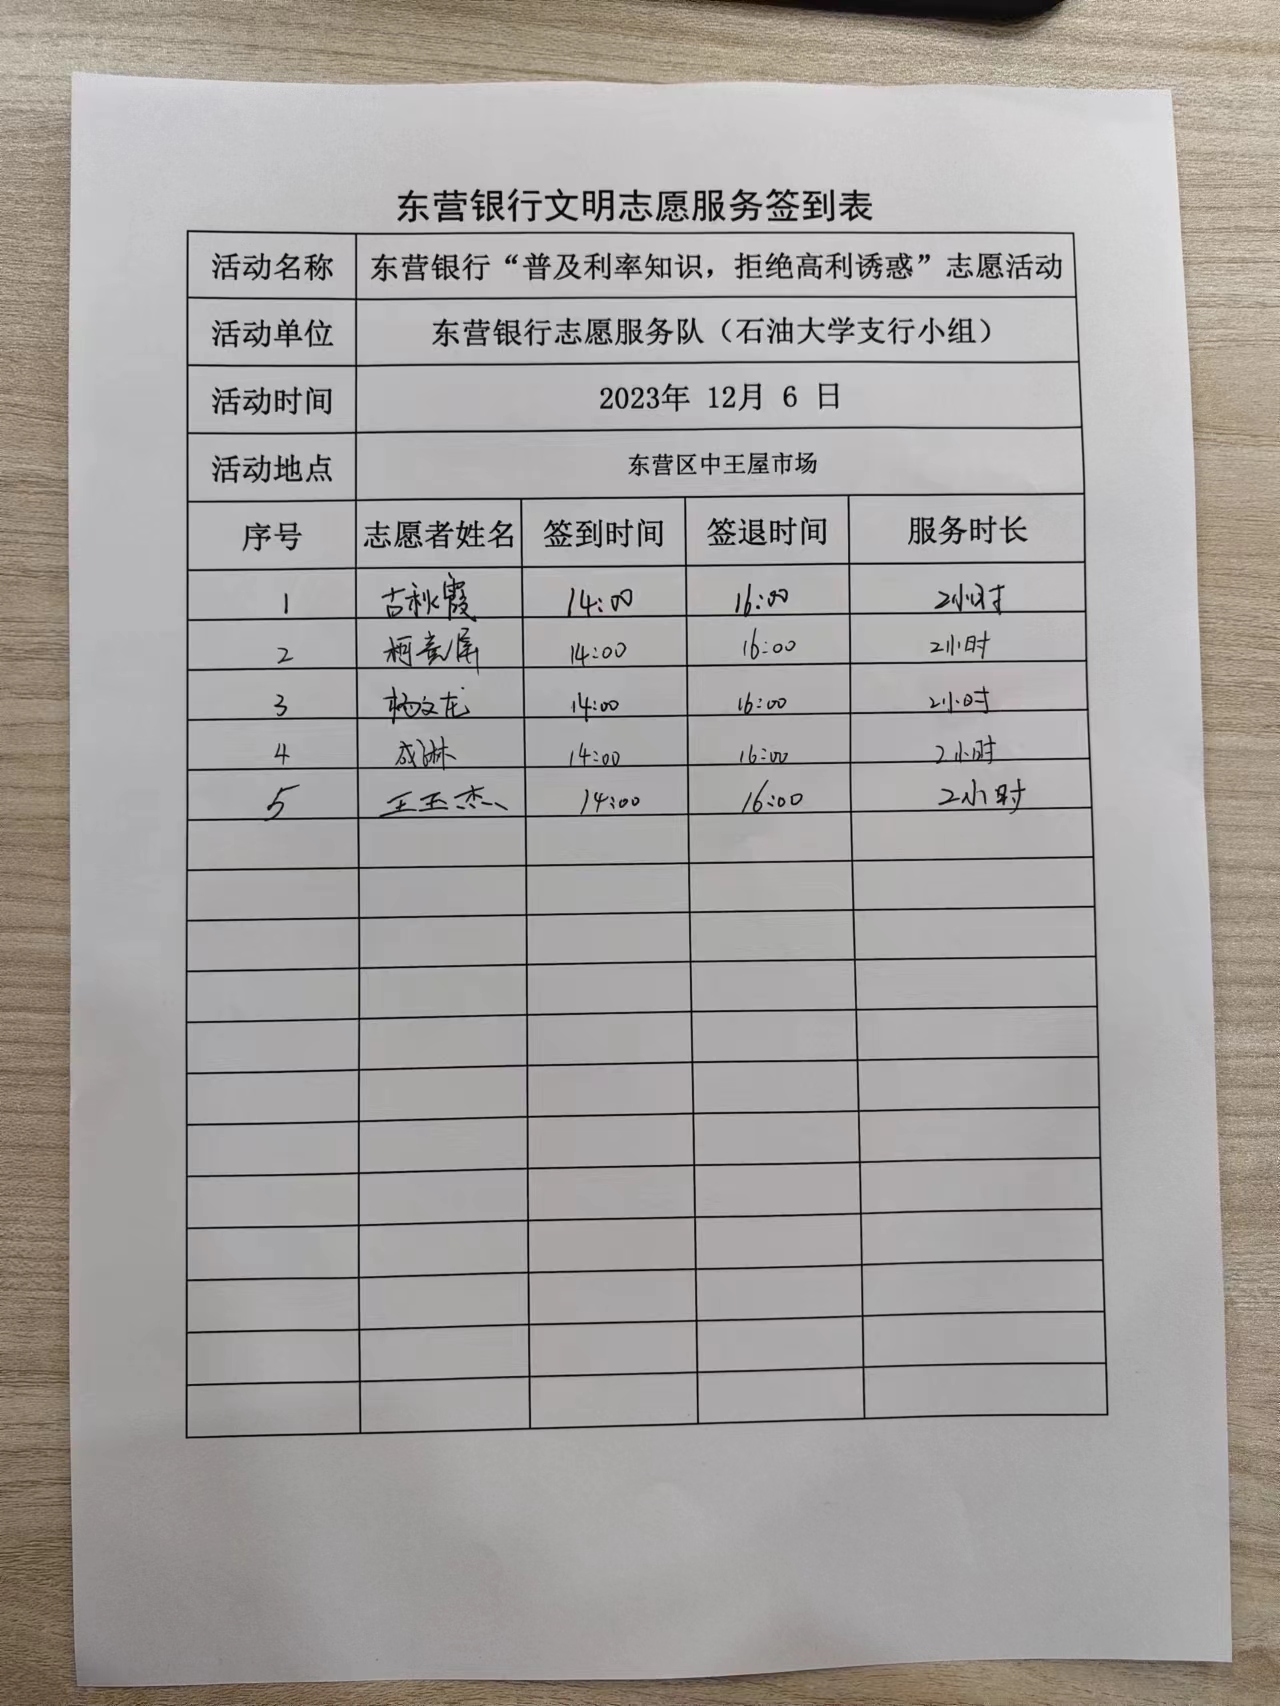 东营银行文明志愿服务签到表
活动名称 东营银行“普及利率知识，拒绝高利诱惑”志愿活动
活动单位 东营银行志愿服务队（石油大学支行小组）
活动时间 2023年 12月 6 日
活动地点 东营区中王屋市场
序号 志愿者姓名 签到时间 签退时间 服务时长
1 古秋霞 14:00 16:00 2小时
2 14:00 16:00 2小时
3 杨文龙 14:00 16:00 2小时
4 成琳 14:00 16:00 2小时
5 王玉杰 14:00 16:00 2小时